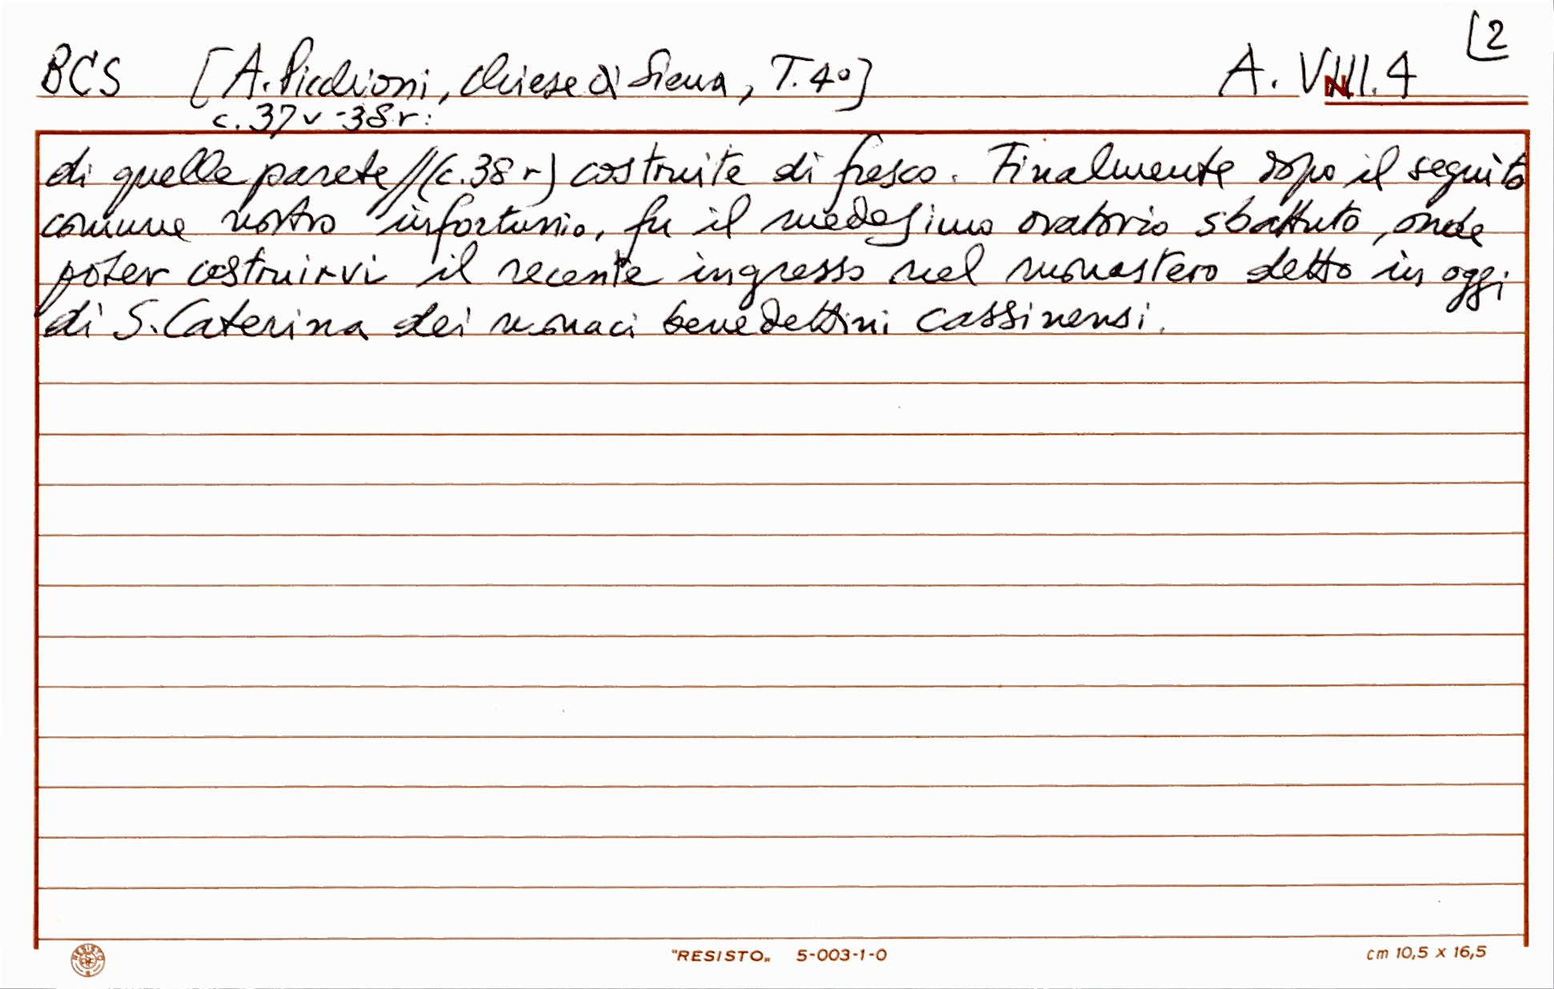 [2
BCS [A. Picchioni, Chiese di Siena, T. 4°] A. VIII. 4
c. 37v-38r:
di quelle parete//(c. 38 r) costruite di fresco. Finalmente dopo il seguito
comune nostro infortunio, fu il medesimo oratorio sbattuto, onde
poter costruirvi il recente ingresso nel monastero detto in oggi
di S. Caterina dei monaci benedettini cassinensi.
RESISTO
"RESISTO„ 5-003-1-0 cm 10,5 x 16,5